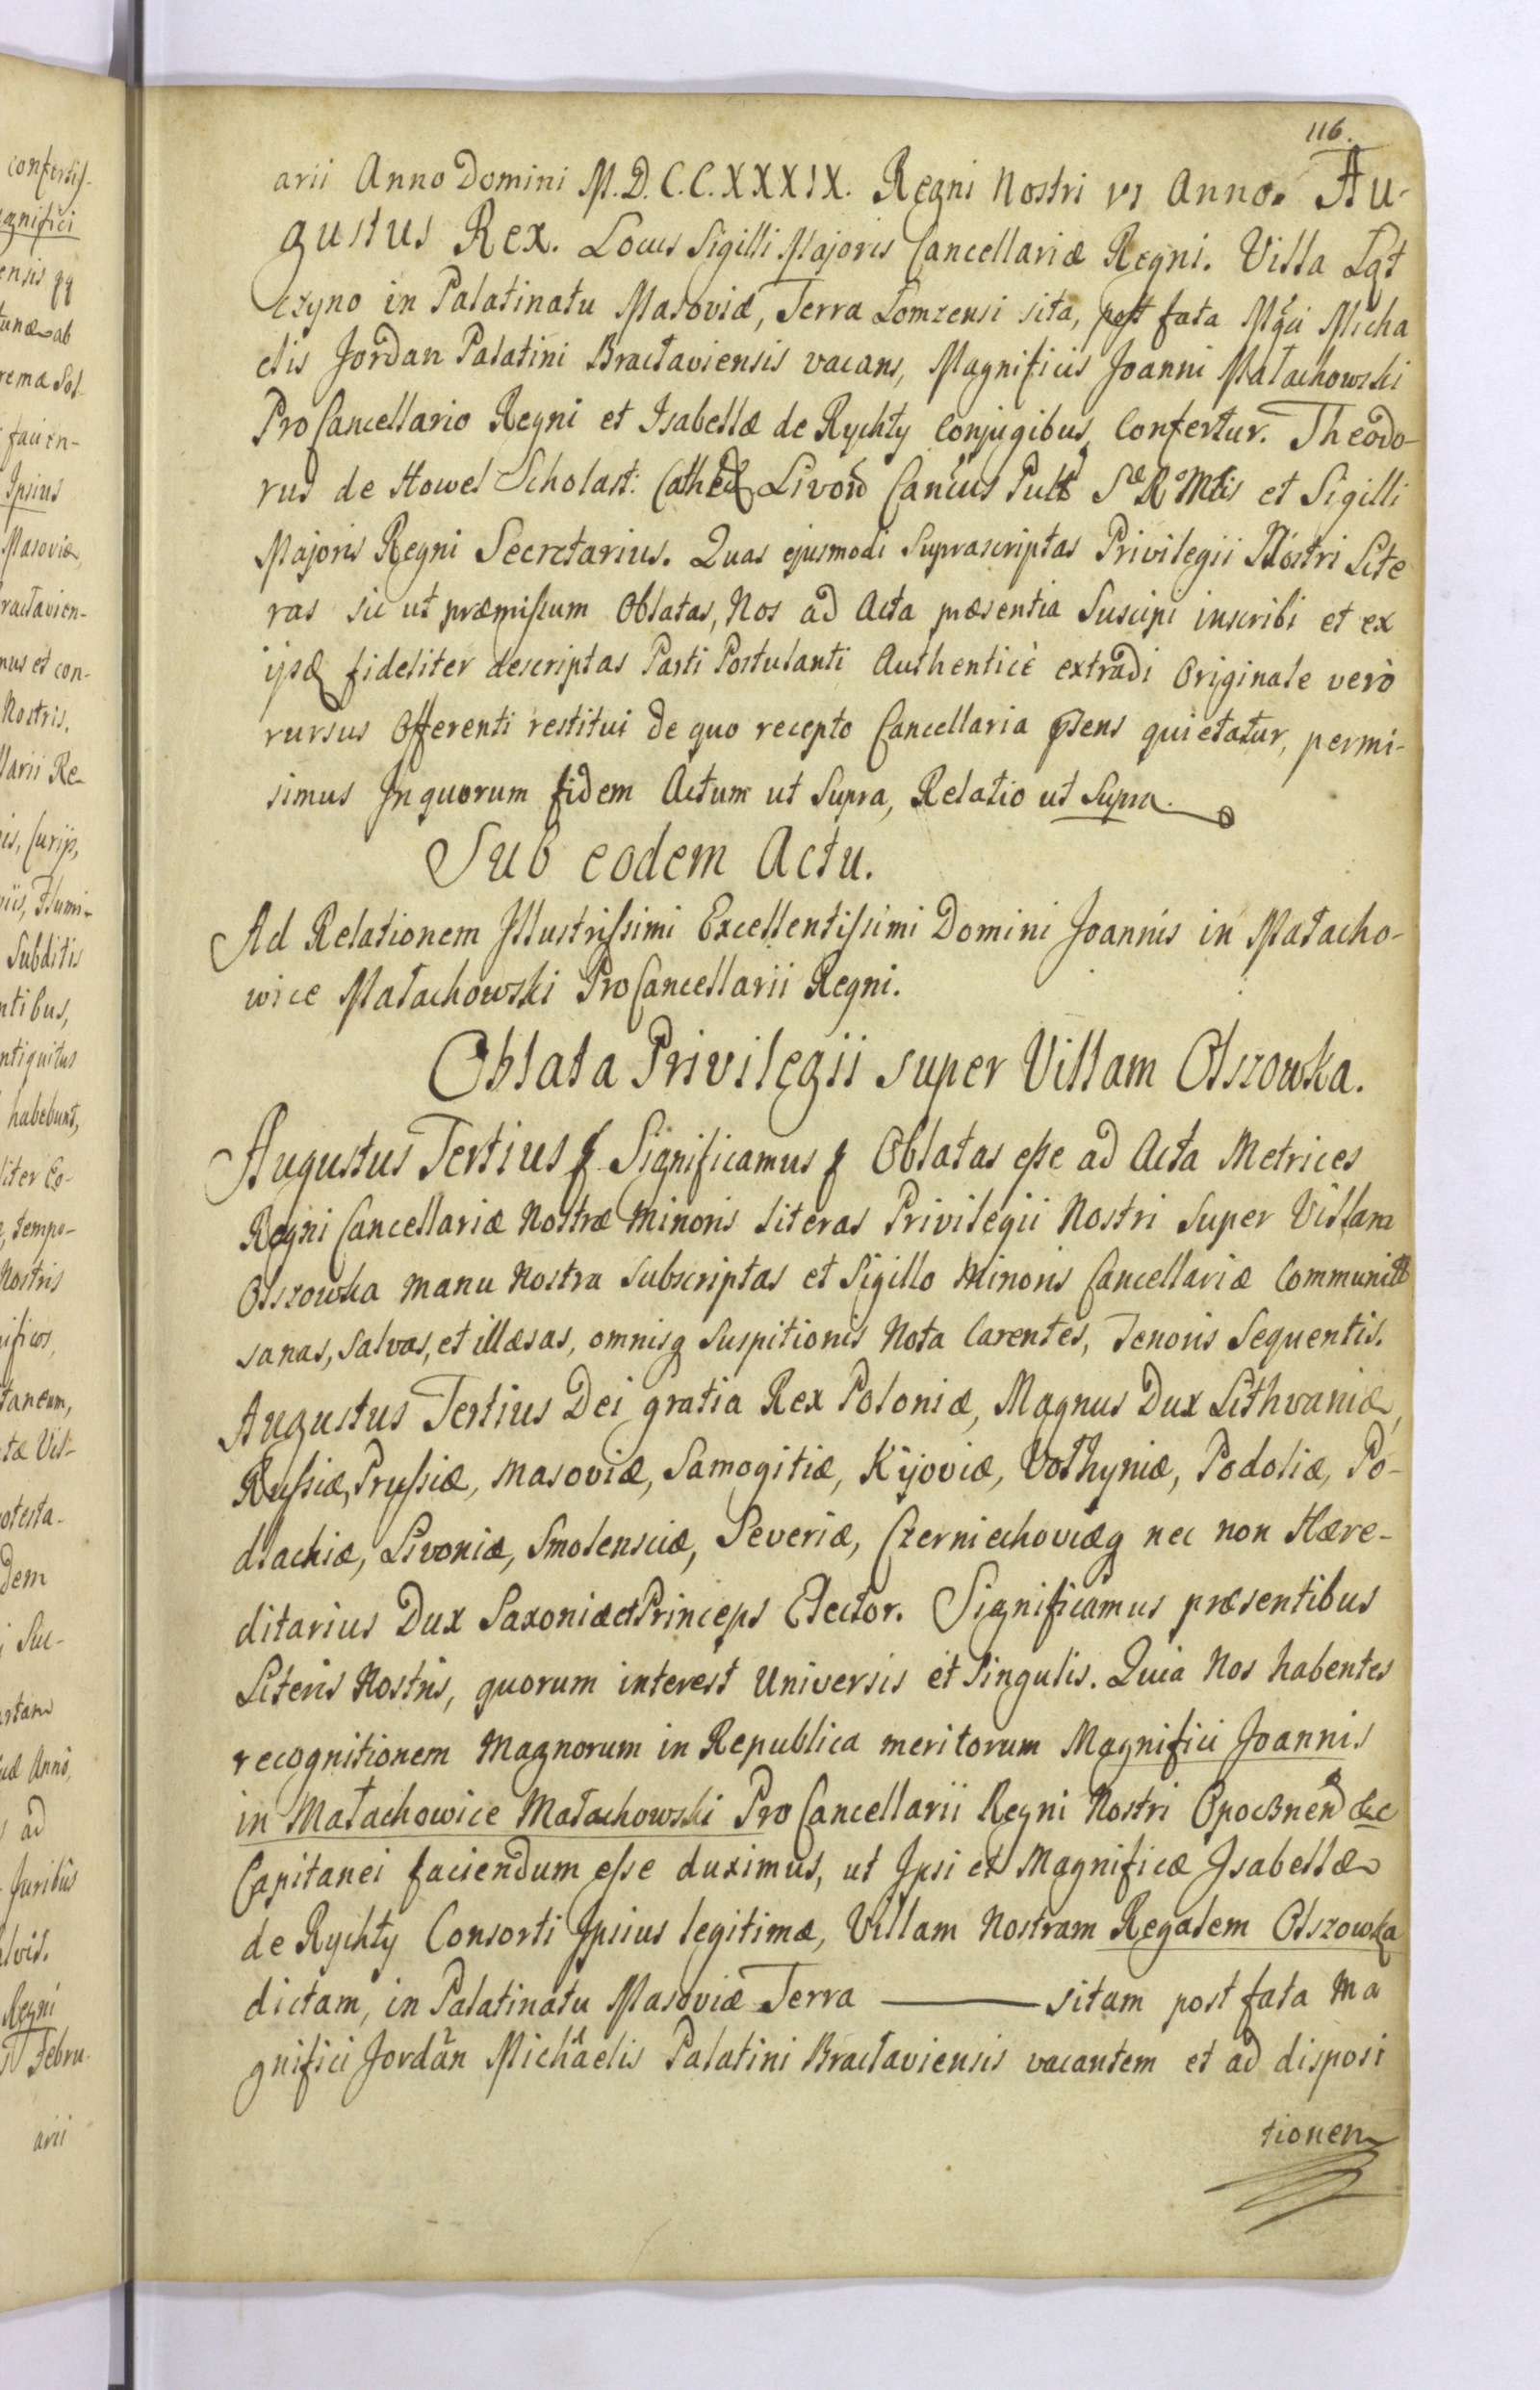 116.
arii Anno Domini M.D.C.C.XXXIX. Regni Nostri VI Anno. Au-
gustus Rex. Locus Sigilli Majoris Cancellariæ Regni. Villa Łąt
czyno in Palatinatu Masoviæ, Terra Łomzensi sita, post fata Mgci Micha
elis Jordan Palatini Bracłaviensis vacans, Magnificis Joanni Małachowski
ProCancellario Regni et Isabellæ de Rychty Conjugibus, Confertur. Theodo-
rus de Howel Scholast: Cathed Livon Cancus Pult S R Mtis et Sigilli
Majoris Regni Secretarius. Quas ejusmodi Suprascriptas Privilegii Nostri Lite
ras sic ut præmissum Oblatas, Nos ad Acta præsentia Suscipi inscribi et ex
ijsq fideliter descriptas Parti Postulanti Authenticè extradi Originale verò
rursus Offerenti restitui de quo recepto Cancellaria pñsens quietatur, permi-
simus In quorum fidem Actum ut Supra, Relatio ut Supra.
Sub eodem Actu.
Ad Relationem Illustrissimi Excellentissimi Domini Joannis in Małacho-
wice Małachowski ProCancellarii Regni.
Oblata Privilegii super Villam Olszowka.
Augustus Tertius Significamus Oblatas esse ad Acta Metrices
Regni Cancellariæ Nostræ Minoris literas Privilegii Nostri Super Villam
Olszowka manu Nostra Subscriptas et Sigillo Minoris Cancellariæ Communitt
sanas, salvas, et illæsas, omnisq Suspitionis Nota Carentes, Tenoris Sequentis.
Augustus Tertius Dei gratia Rex Poloniæ, Magnus Dux Lithvaniæ,
Russiæ, Prussiæ, Masoviæ, Samogitiæ, Kijoviæ, Vołhyniæ, Podoliæ, Po-
dlachiæ, Livoniæ, Smolensciæ, Severiæ, Czerniechoviæq nec non Hære-
ditarius Dux Saxoniæ et Princeps Elector. Significamus præsentibus
Literis Nostris, quorum interest Universis et Singulis. Quia Nos habentes
recognitionem Magnorum in Republica meritorum Magnifici Joannis
in Małachowice Małachowski ProCancellarii Regni Nostri Opocznen &c
Capitanei faciendum esse duximus, ut Ipsi et Magnificæ Isabellæ
de Rychty Consorti Ipsius legitimæ, Villam Nostram Regalem Olszowka
dictam, in Palatinatu Masoviæ Terra ——— sitam post fata Ma
gnifici Jordan Michaelis Palatini Bracłaviensis vacantem et ad disposi
tionem